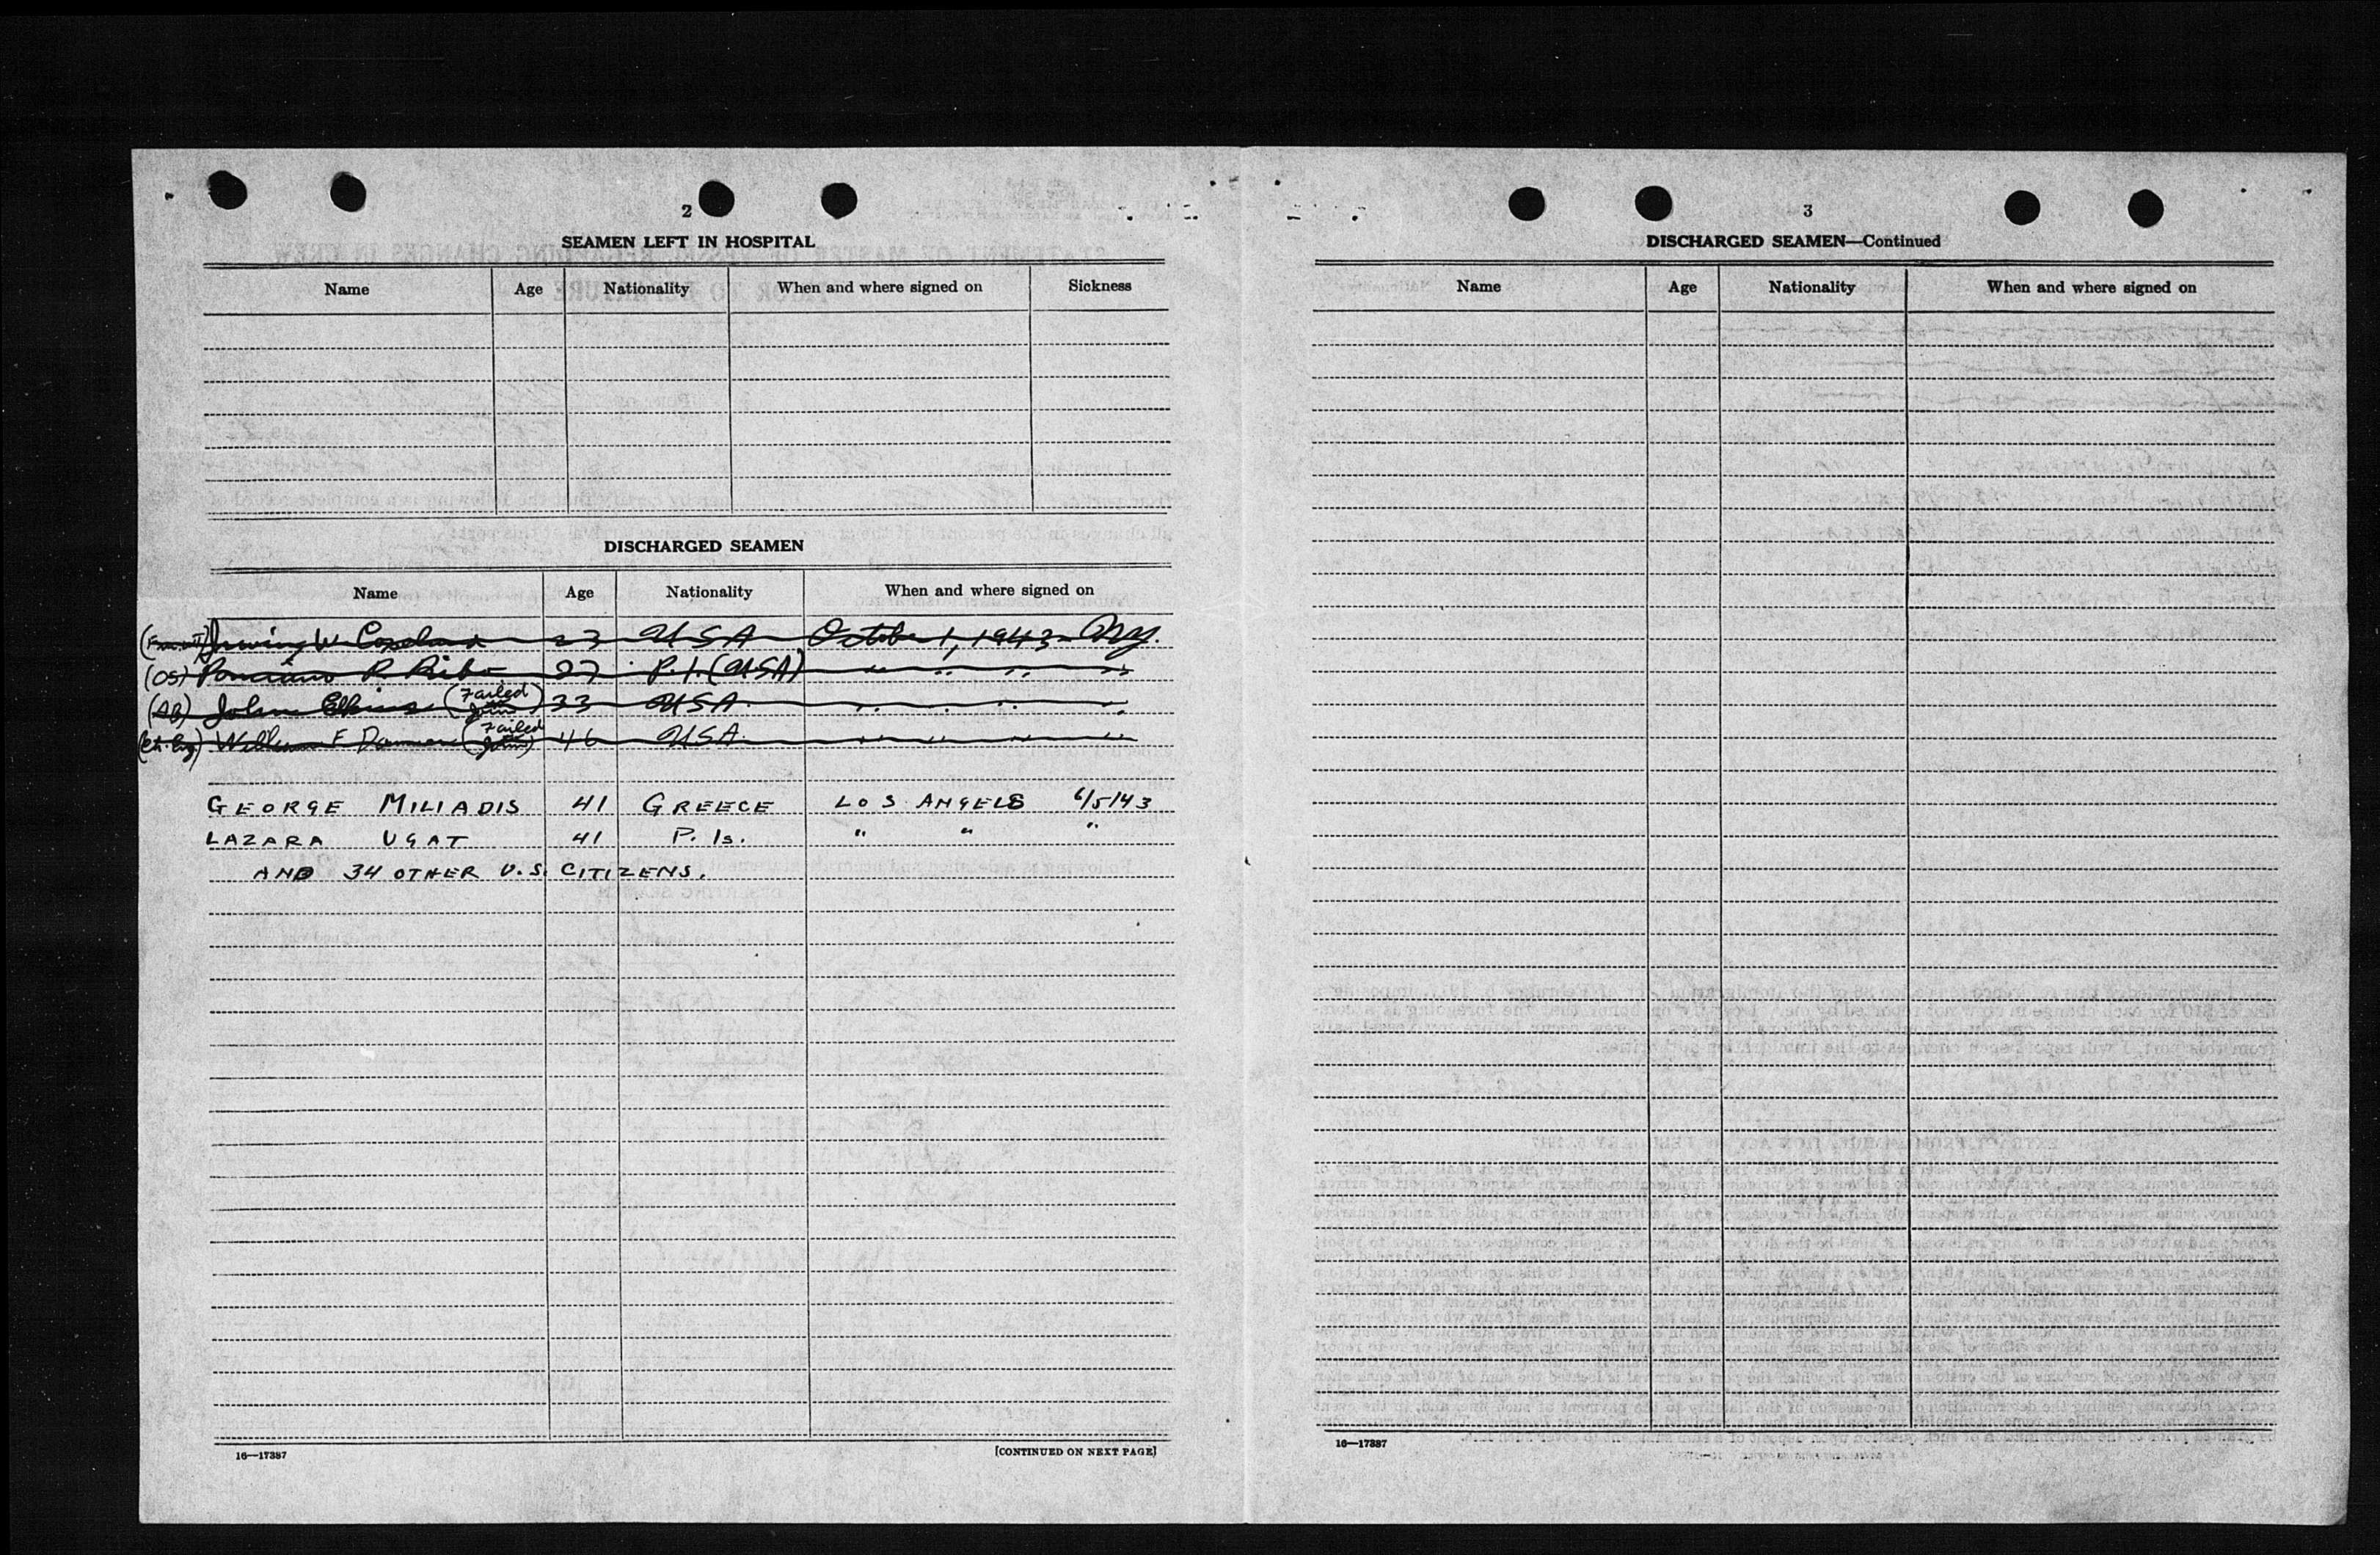 2
SEAMEN LEFT IN HOSPITAL
Name Age Nationality When and where signed on Sickness
DISCHARGED SEAMEN
Name Age Nationality When and where signed on
Irving W. Copeland 23 USA October 1, 1943 Ny.
(OS) R 27 P.I. (USA) " " "
(AB) John Elkins (Failed Join) 33 USA " " "
William F (Failed Join) 46 USA " " "
GEORGE MILIADIS 41 GREECE LOS ANGELS 6/5/43
LAZARA UGAT 41 P. Is. " " "
AND 34 OTHER U.S. CITIZENS.
16—17387 [CONTINUED ON NEXT PAGE]
3
DISCHARGED SEAMEN—Continued
Name Age Nationality When and where signed on
16—17387